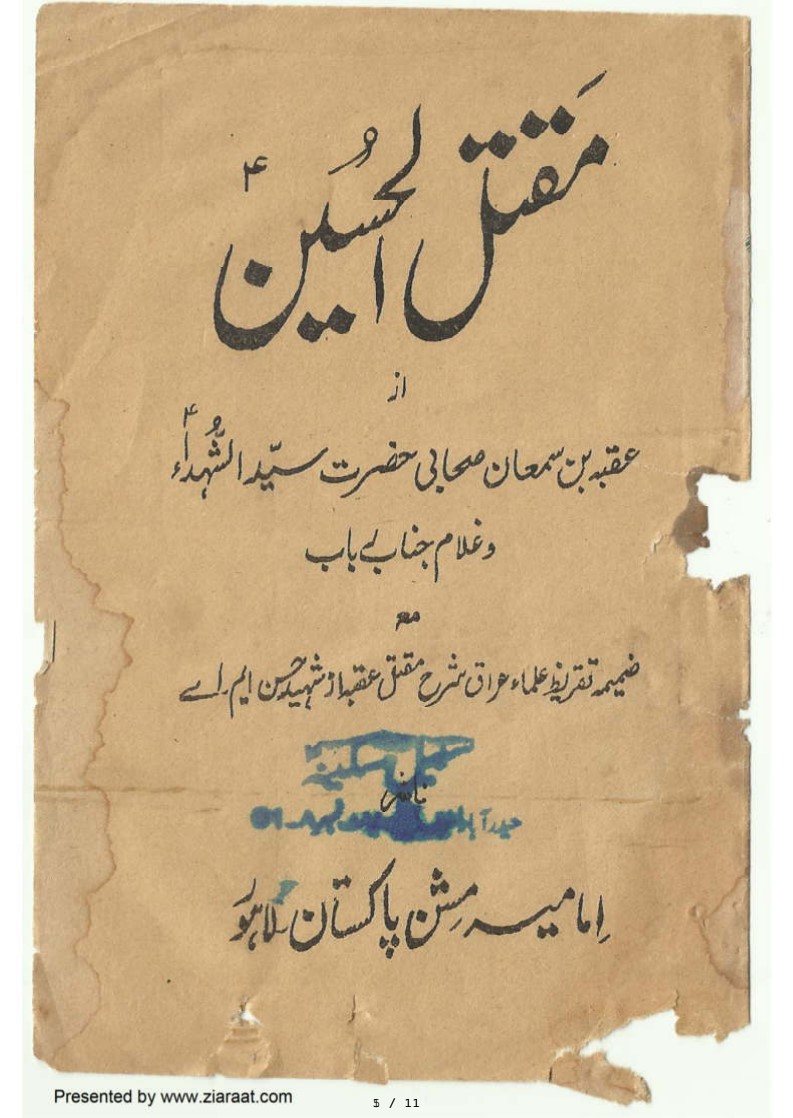 مَقتل الحُسین ؑ
از
عقبہ بن سمعان صحابی حضرت سیّد الشُّہداء ؑ
و غلام جناب رباب
مع
ضمیمہ تقریظ علماء عراق شرح مقتل عقبہ از شہید حسن ایم اے
ناشر
اِمامیہ مِشن پاکستان لاہور
Presented by www.ziaraat.com
5 / 11